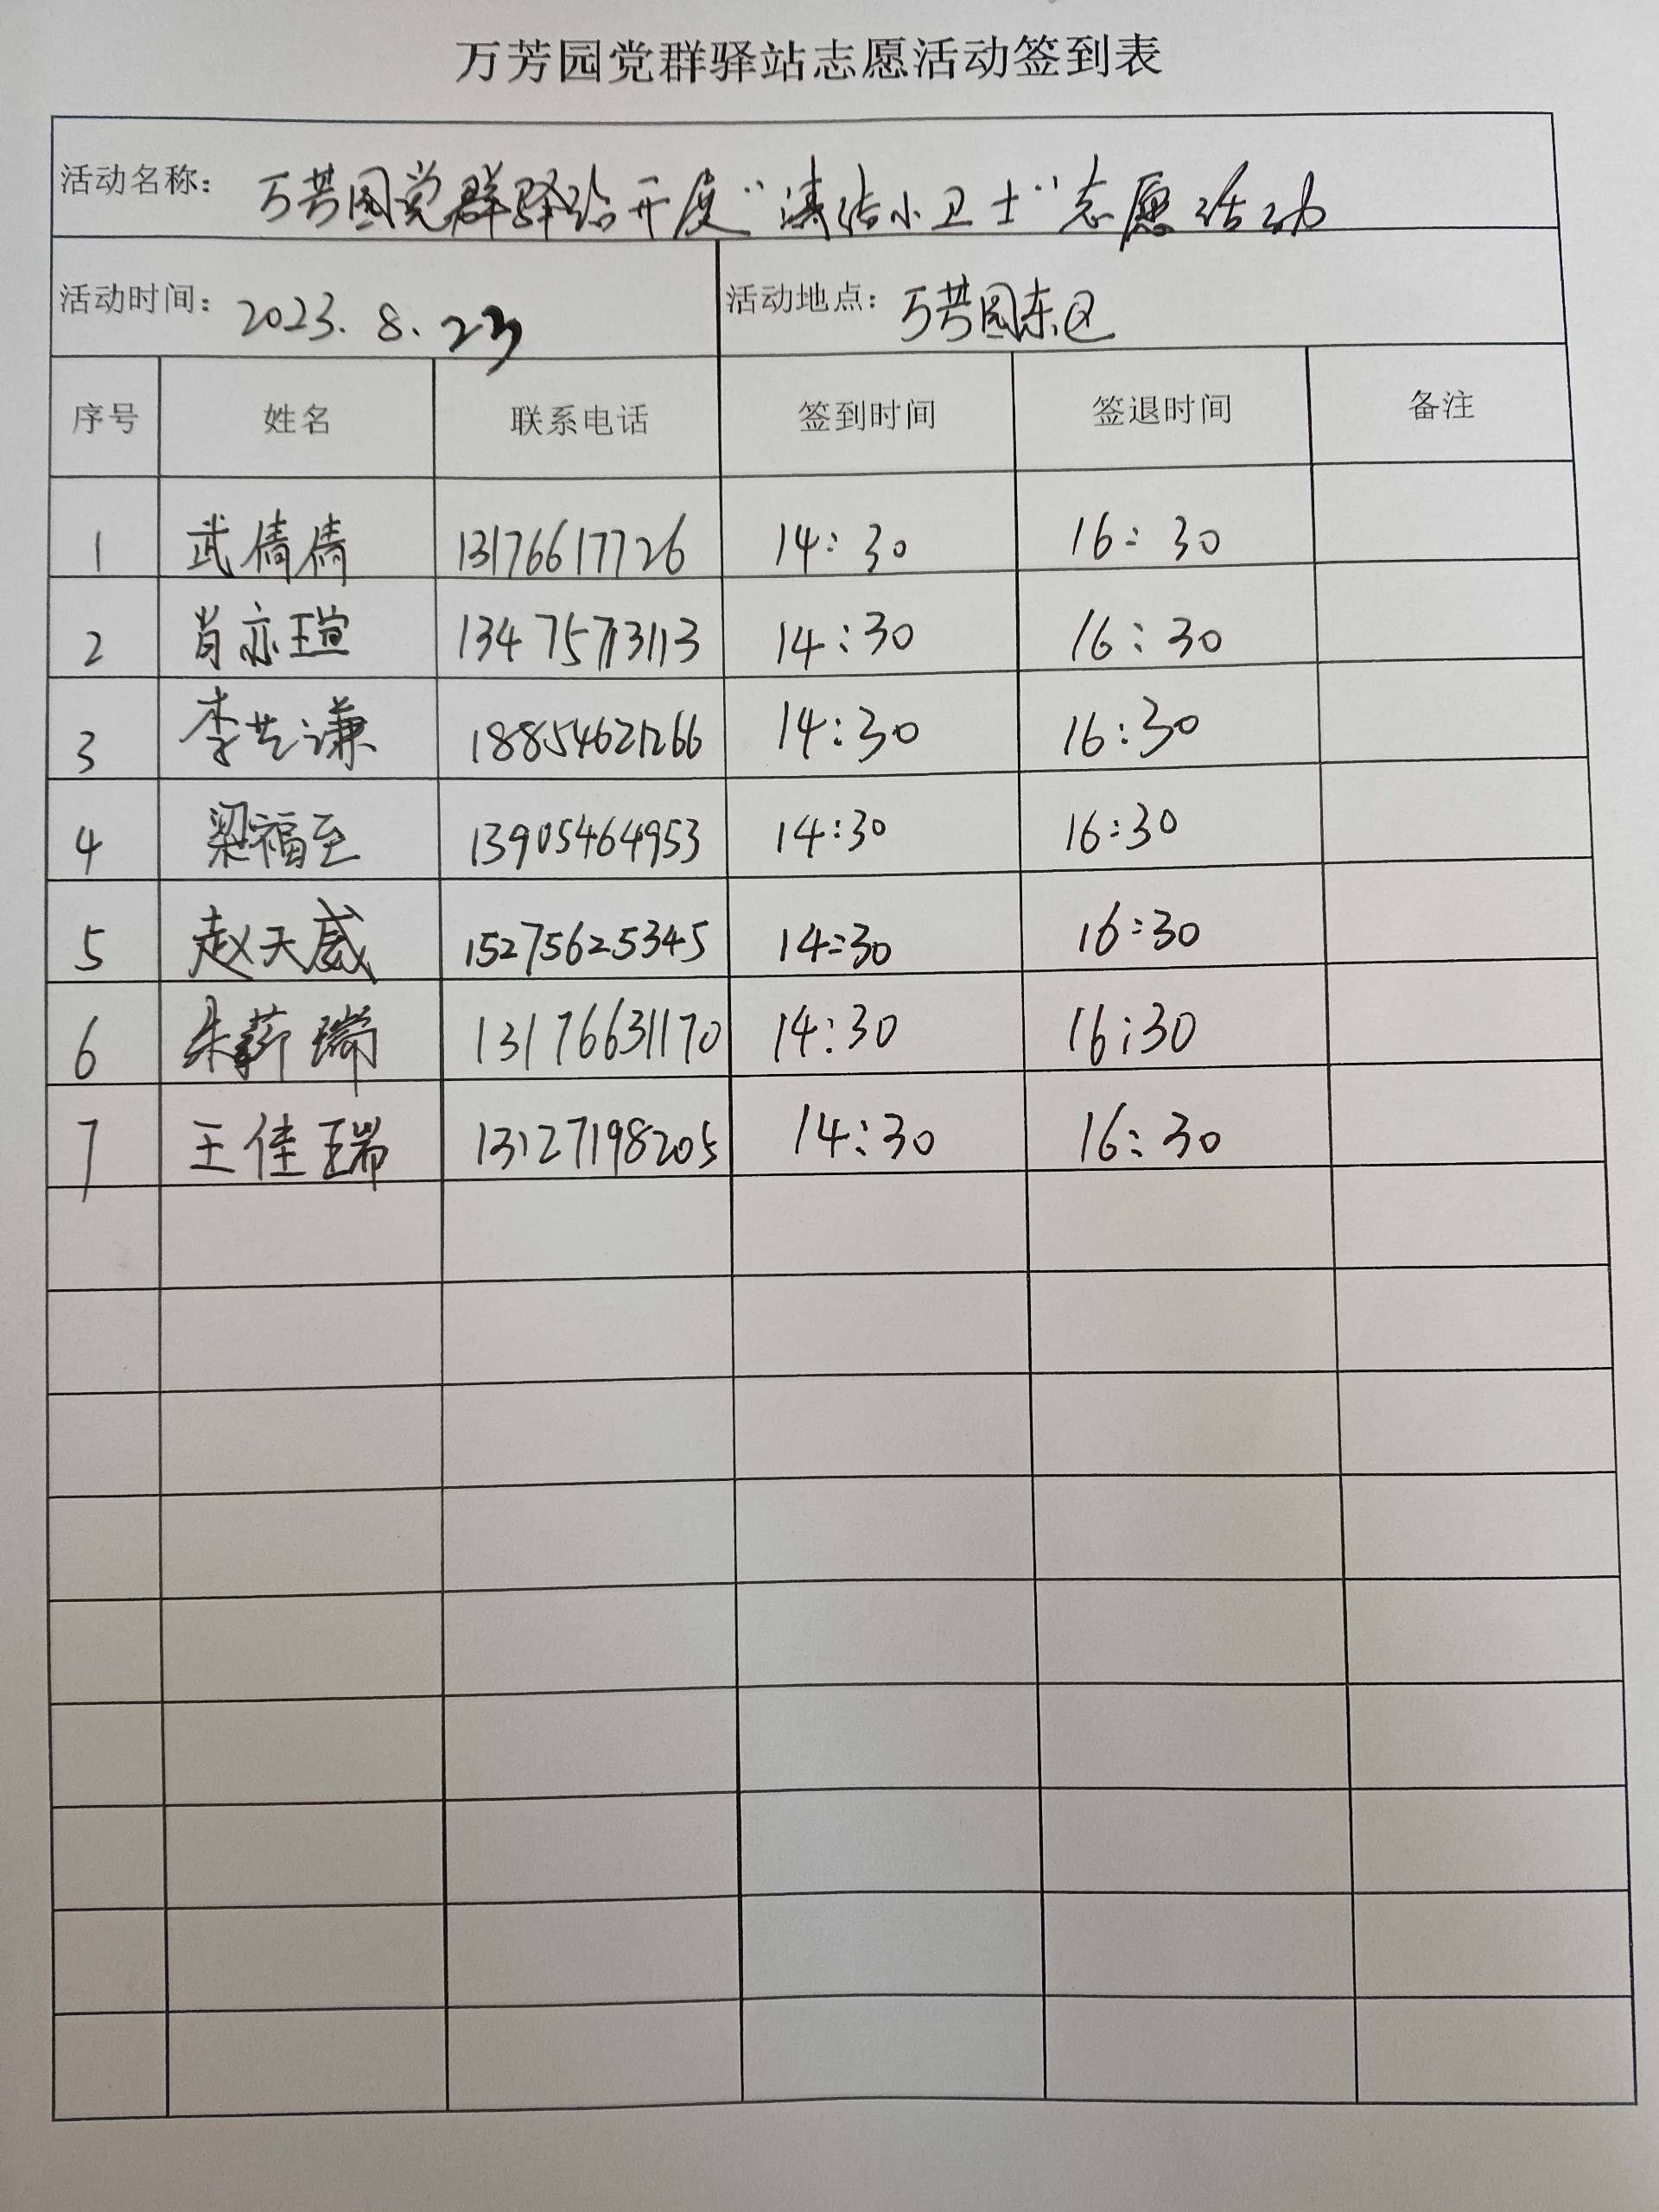 万芳园党群驿站志愿活动签到表
活动名称： 万芳园党群驿站开展“清洁小卫士”志愿活动
活动时间： 2023.8.23 活动地点： 万芳园东区
序号 姓名 联系电话 签到时间 签退时间 备注
1 武倩倩 13176617726 14:30 16:30
2 肖亦瑄 13475713113 14:30 16:30
3 李艺谦 18854621266 14:30 16:30
4 梁福至 13905464953 14:30 16:30
5 赵天威 15275625345 14:30 16:30
6 朱薪瑞 13176631170 14:30 16:30
7 王佳瑞 13127198205 14:30 16:30